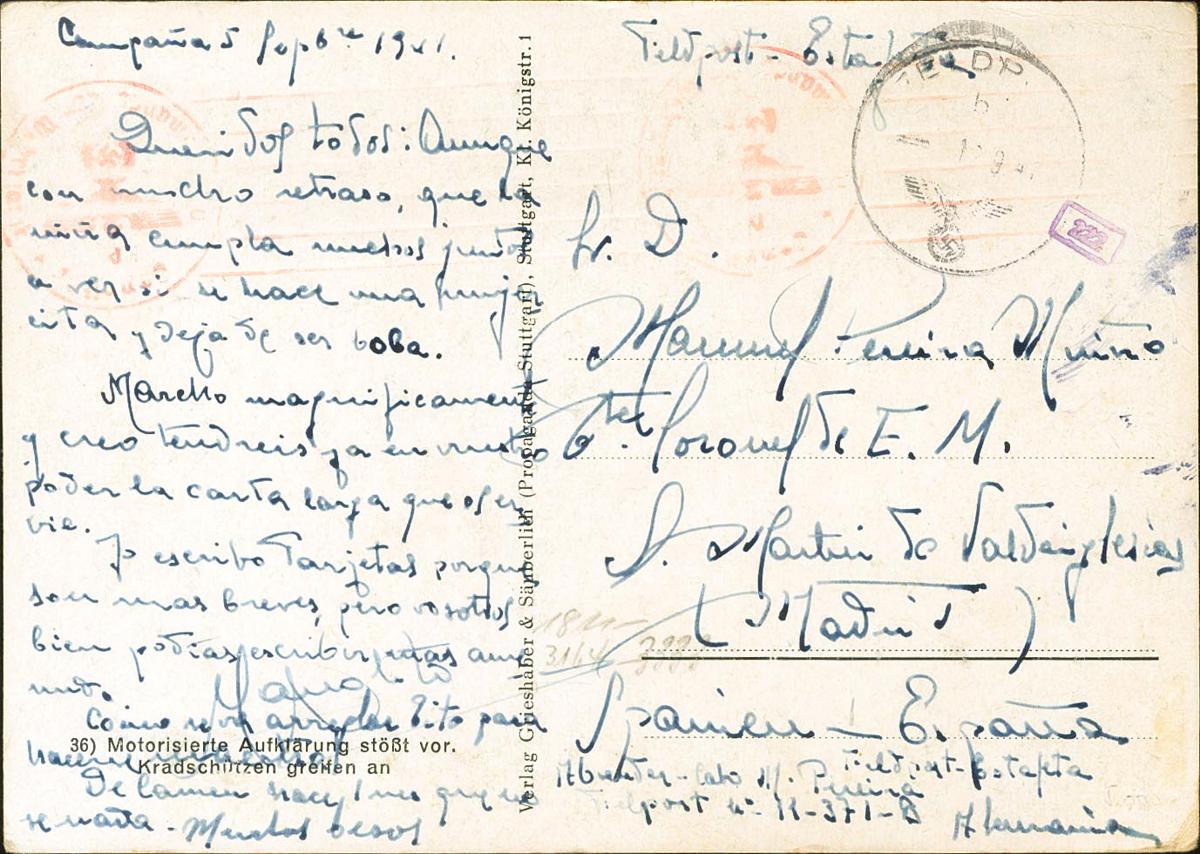 Campaña 5 Sepbre 1941.
Queridos todos: Aunque
con mucho retraso, que la
niña cumpla muchos juntos
a ver si se hace una mujer
cita y deja de ser boba.
Marcho magnificamente
y creo tendreis ya en vuestro
poder la carta larga que os en
vie.
Yo escribo Tarjetas porque
son mas breves, pero vosotros
bien podias escribir mas ami
nudo.
Como se va arreglar Tito para
hacerse
De Carmen hace 1 mes que no
se nada. Muchos besos
Manolo
36) Motorisierte Aufklärung stößt vor.
Kradschützen greifen an
Verlag Grieshaber & Sämberlich (Propaganda Stuttgart), Stuttgart, Kl. Königstr. 1
Feldpost - Estafeta
FELDP.
b
9 41
222
Sr. D.
Manuel Pereira Muiño
Tte Coronel de E. M.
S. Martin de Valdeiglesias
(Madrid)
1811-
3164
Spanien - España
Absender - Cabo M. P. Pereira
Feldpost - Estafeta
Feldpost nº 11-371-B
Alemania